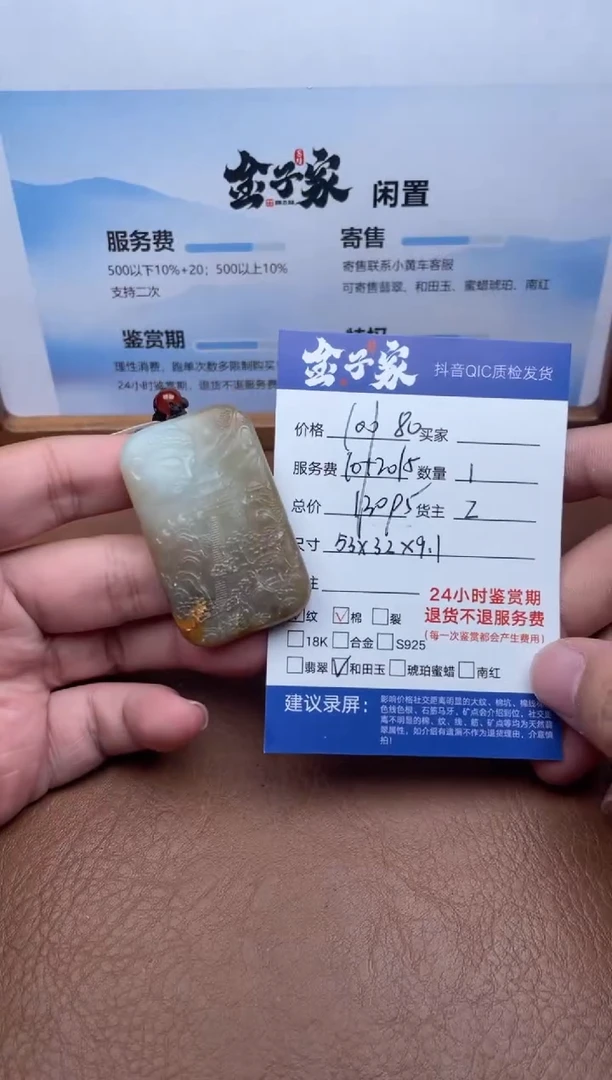 金子家 闲置
服务费
500以下10%+20；500以上10%
支持二次
寄售
寄售联系小黄车客服
可寄售翡翠、和田玉、蜜蜡琥珀、南红
鉴赏期
理性消费，跑单次数多限制购买
24小时鉴赏期，退货不退服务费
金子家 抖音QIC质检发货
价格 100 80 买家
服务费 10+20 15 数量 1
总价 130 95 货主 Z
尺寸 53×32×9.1
注
24小时鉴赏期
退货不退服务费
(每一次鉴赏都会产生费用)
纹 棉 裂
18K 合金 S925
翡翠 和田玉 琥珀蜜蜡 南红
建议录屏：
影响价格社交距离明显的大纹、棉坑、棉线
色线色根、石筋马牙，矿点会介绍到位，社交
离不明显的棉、纹、线、筋、矿点等均为天然翡
翠属性，如介绍有遗漏不作为退货理由，介意慎
拍！